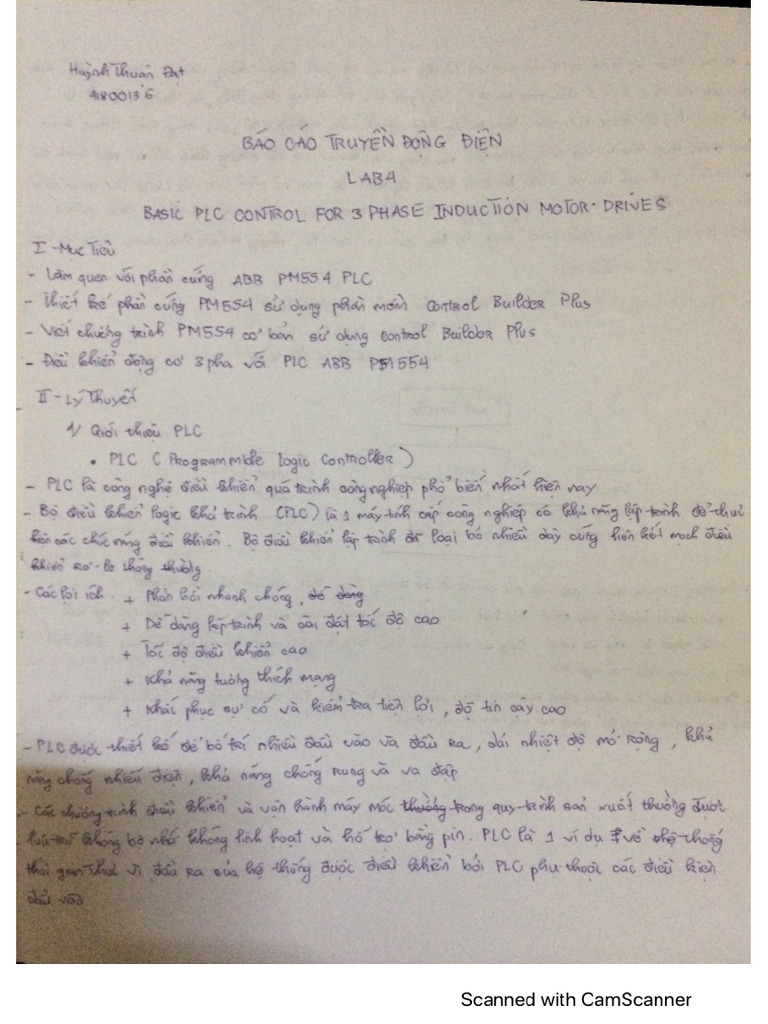 Huỳnh Thuận Đạt
41800136
BÁO CÁO TRUYỀN ĐỘNG ĐIỆN
LAB4
BASIC PLC CONTROL FOR 3 PHASE INDUCTION MOTOR DRIVES
I - Mục Tiêu
- Làm quen với phần cứng ABB PM554 PLC
- Thiết kế phần cứng PM554 sử dụng phần mềm Control Builder Plus
- Viết chương trình PM554 cơ bản sử dụng Control Builder Plus
- Điều khiển động cơ 3 pha với PLC ABB PM554
II - Lý Thuyết
1/ Giới thiệu PLC
• PLC (Programmble Logic Controller)
- PLC là công nghệ điều khiển quá trình công nghiệp phổ biến nhất hiện nay
- Bộ điều khiển logic khả trình (PLC) là 1 máy tính cấp công nghiệp có khả năng lập trình để thực
hiện các chức năng điều khiển. Bộ điều khiển lập trình đã loại bỏ nhiều dây cứng liên kết mạch điều
khiển rơ-le thông thường.
- Các lợi ích + Phản hồi nhanh chóng,
+ Dễ dàng lập trình và cài đặt tốc độ cao
+ Tốc độ điều khiển cao
+ Khả năng tương thích mạng
+ Khắc phục sự cố và kiểm tra tiện lợi, độ tin cậy cao
- PLC được thiết kế để bố trí nhiều đầu vào và đầu ra, dải nhiệt độ mở rộng, khả
năng chống nhiễu điện, khả năng chống rung và va đập
- Các chương trình điều khiển và vận hành máy móc trong quy trình sản xuất thường được
lưu trữ không bộ nhớ không linh hoạt và hỗ trợ bằng pin. PLC là 1 ví dụ về hệ thống
thời gian thực vì đầu ra của hệ thống được điều khiển bởi PLC phụ thuộc các điều kiện
đầu vào
Scanned with CamScanner